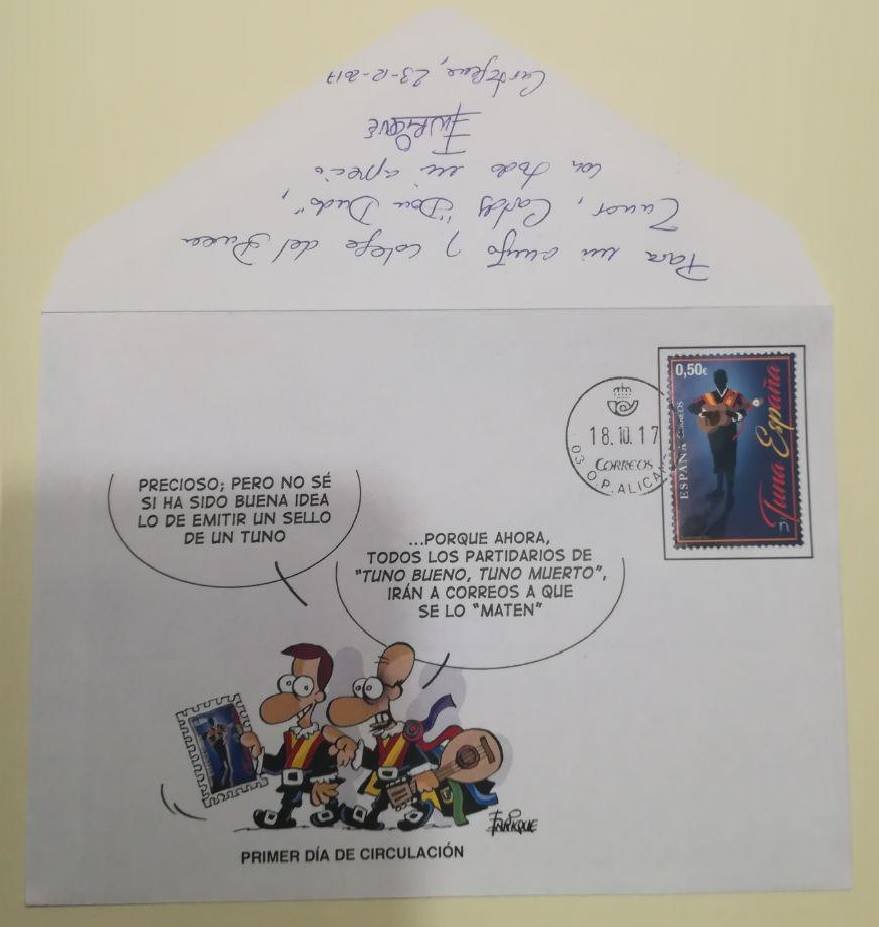 Para mi amigo y colega del Buen
Tunar, "Don Dudo",
con todo mi aprecio
ENRIQUE
23-12-2017
0,50€
ESPAÑA CORREOS
Tuna España
18.10.17
CORREOS
03 O.P. ALICA
PRECIOSO; PERO NO SÉ
SI HA SIDO BUENA IDEA
LO DE EMITIR UN SELLO
DE UN TUNO
...PORQUE AHORA,
TODOS LOS PARTIDARIOS DE
"TUNO BUENO, TUNO MUERTO",
IRÁN A CORREOS A QUE
SE LO "MATEN"
ENRIQUE
PRIMER DÍA DE CIRCULACIÓN